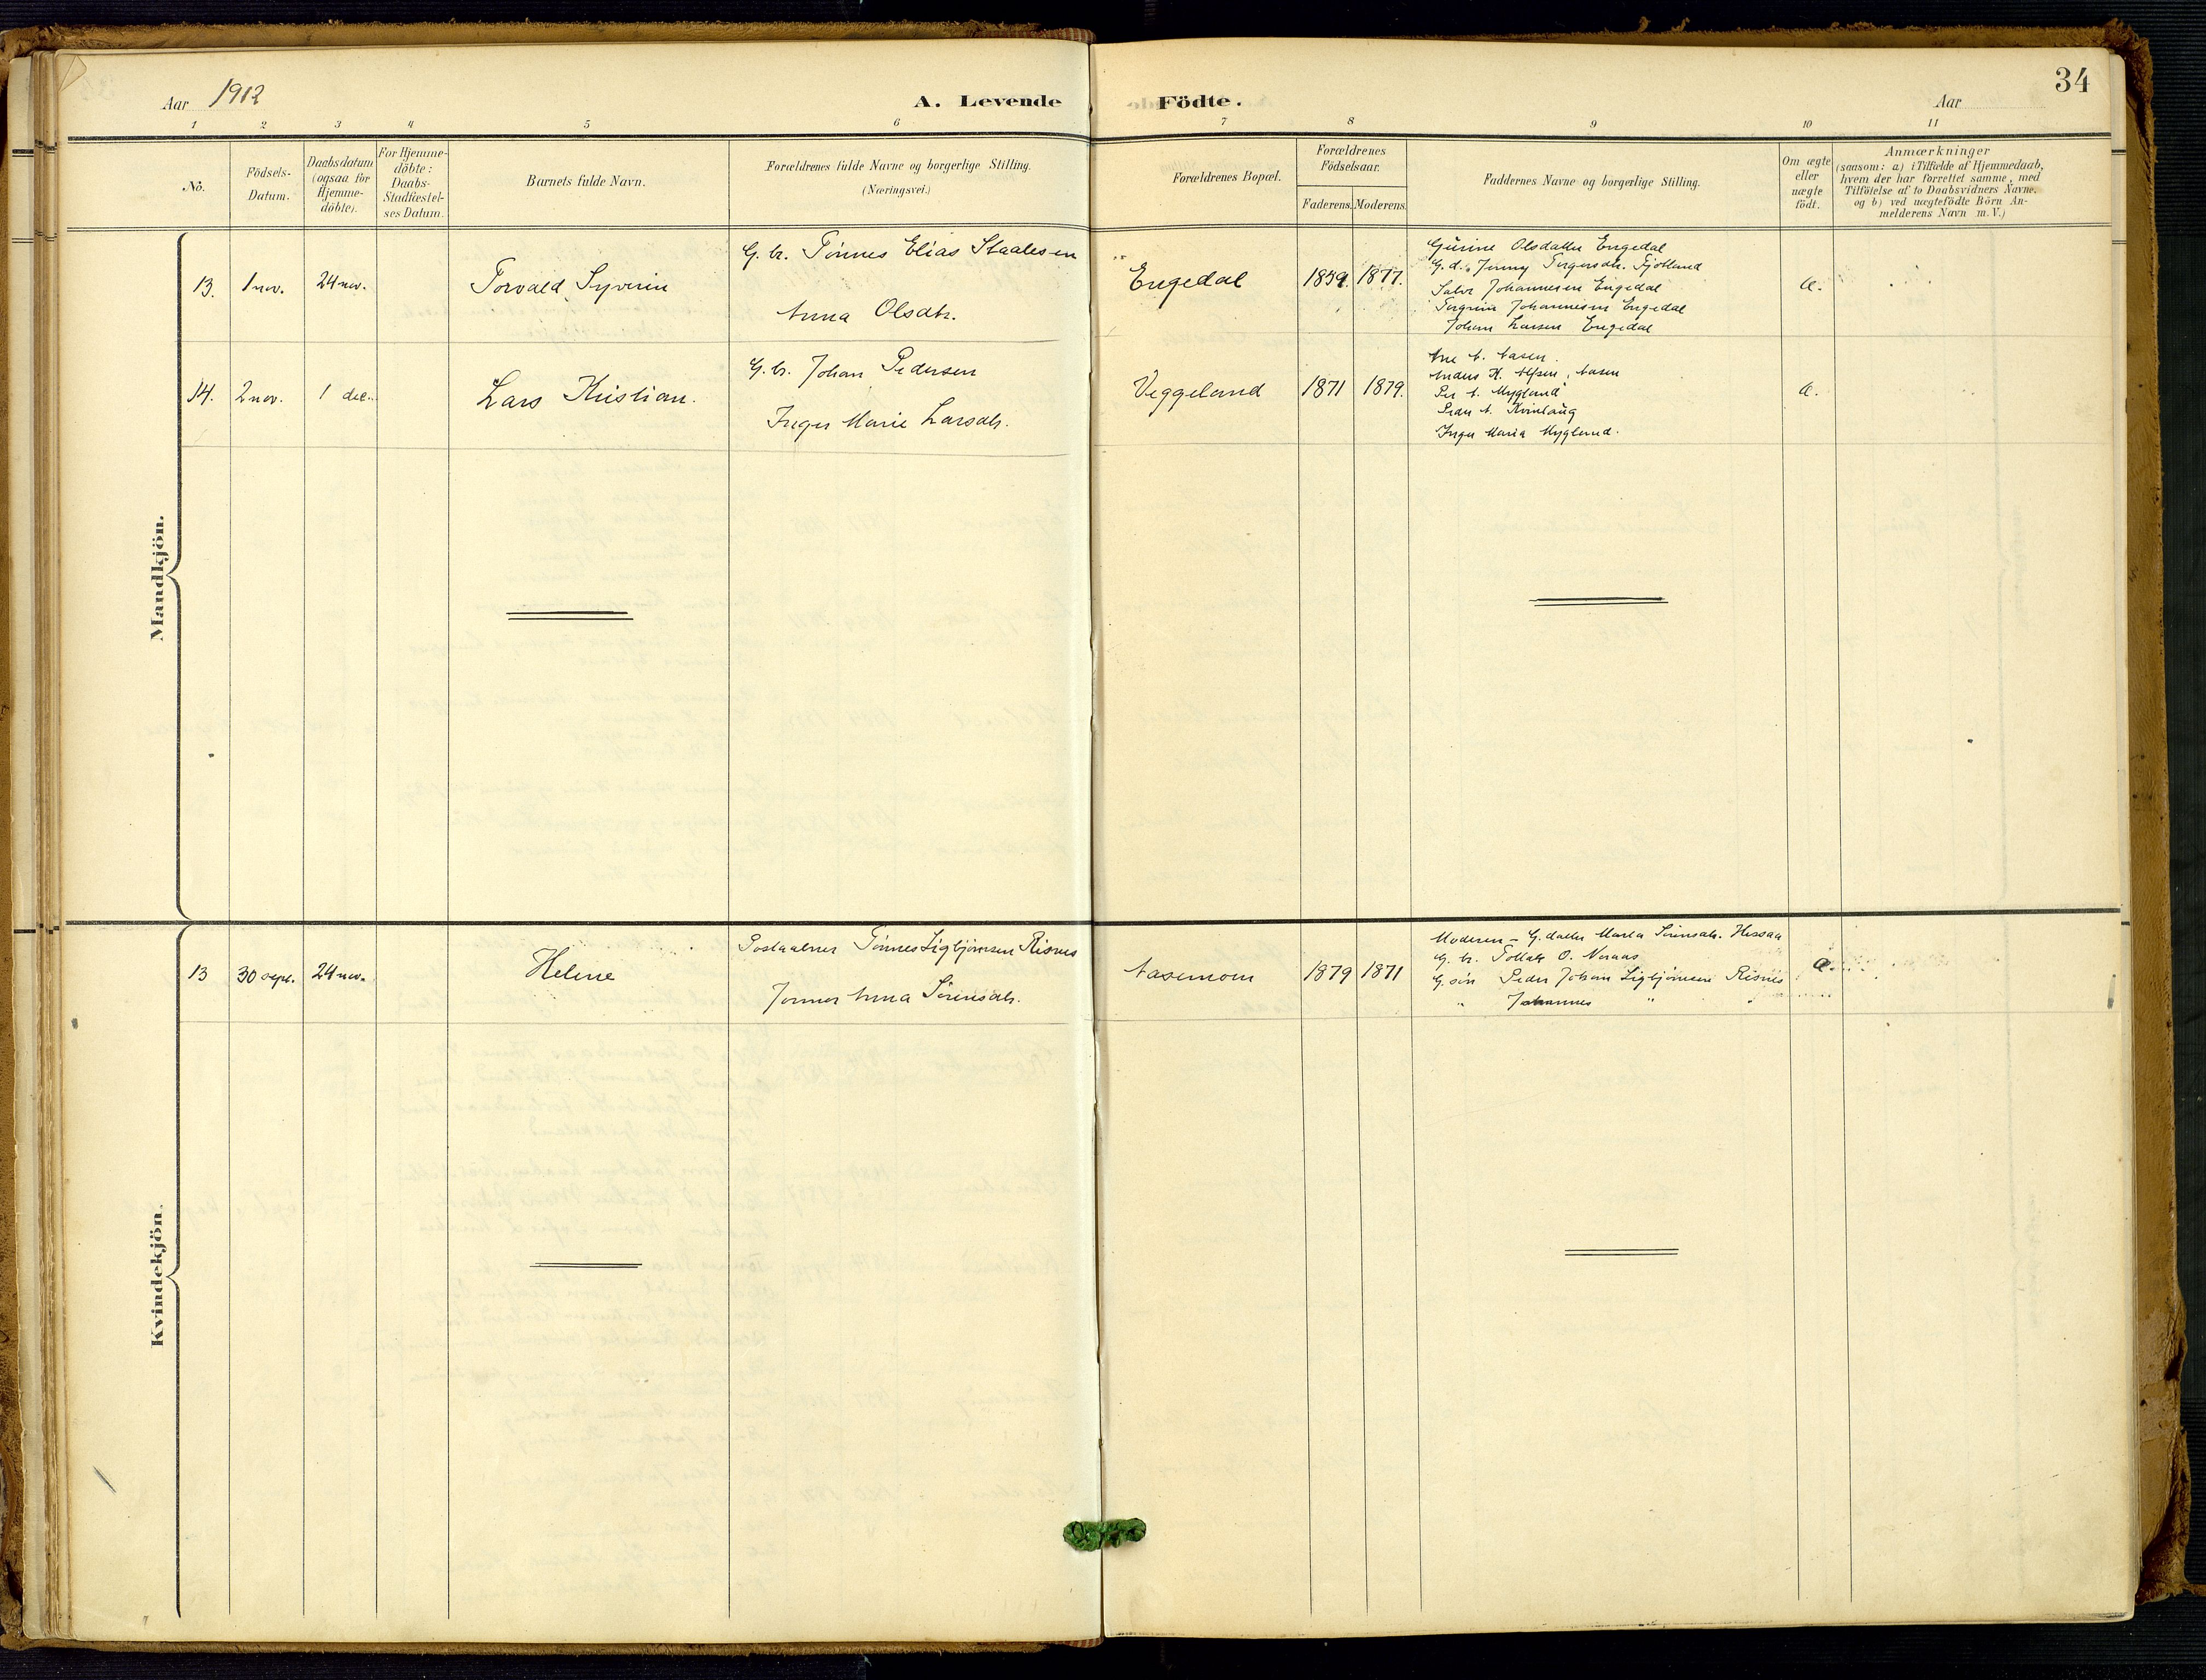 Aar 1912
A. Levende Födte.
Aar
34
1 2 3 4 5 6 7 8 9 10 11
No.
Födsels-
Datum.
Daabsdatum
(ogsaa for
Hjemme-
döbte).
For Hjemme-
döbte:
Daabs-
Stadfæstel-
ses Datum.
Barnets fulde Navn.
Forældrenes fulde Navne og borgerlige Stilling.
(Næringsvei.)
Forældrenes Bopæl.
Forældrenes
Födselsaar.
Faderens. Moderens.
Faddernes Navne og borgerlige Stilling.
Om ægte
eller
uægte
födt.
Anmærkninger
(saasom: a) i Tilfælde af Hjemmedaab,
hvem der har forrettet samme, med
Tilföielse af to Daabsvidners Navne.
og b) ved uægtefödte Börn An-
melderens Navn m. V.)
Mandkjön.
13. 1 nov. 24 nov.
Torvald Syverin
G. br. Tønnes Elias Staalesen
Anna Olsdtr.
Engedal
1859. 1877.
Gurine Olsdatter Engedal
G. d. Jenny Tergersdtr. Fjotland
Salve Johannesen Engedal
Tergrim Johannesen Engedal
Johan Larsen Engedal
Æ.
14. 2 nov. 1 dec.
Lars Kristian.
G. br. Johan Pedersen
Inger Marie Larsdtr.
Veggeland
1871 1879.
Ane A. Aasen.
Anders K. Alfsen, Aasen
Per A. Mygland
Peder A. Kvinlaug
Inger Maria Mygland.
Æ.
Kvindekjön.
13 30 sept. 24 nov.
Helene
Postaabner Tønnes Sigbjørnsen Risnes
Anna Sørensdtr.
Aasemoen
1879 1871
Moderen - G. datter Marta Sørensdtr. Hissaa
G. br. Tollak O. Neraas
G. søn Peder Johan Sigbjørnsen Risnes
" Johannes " "
Æ.